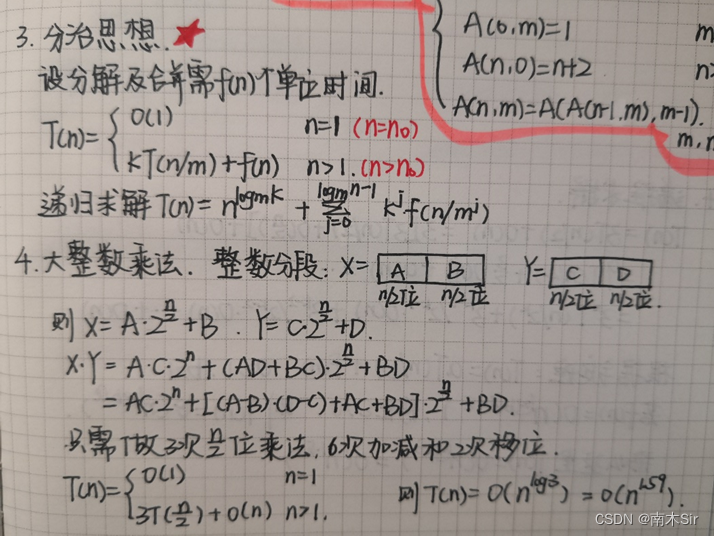 A(0,m)=1 m
A(n,0)=n+2 n>
A(n,m)=A(A(n-1,m),m-1).
m,n
3. 分治思想.
设分解及合并需f(n)个单位时间.
T(n)={ O(1) n=1 (n=n₀)
kT(n/m)+f(n) n>1. (n>n₀)
递归求解T(n)= n^{logmk} + Σ_{j=0}^{logmn-1} k^j f(n/m^j)
4.大整数乘法. 整数分段: X= A B Y= C D
n/2位 n/2位 n/2位 n/2位.
则 X=A·2^{n/2}+B . Y=C·2^{n/2}+D.
X·Y=A·C·2^n+(AD+BC)·2^{n/2}+BD
=AC·2^n+[(A-B)·(D-C)+AC+BD]·2^{n/2}+BD.
只需做3次n/2位乘法, 6次加减和2次移位.
T(n)={ O(1) n=1
3T(n/2)+O(n) n>1.
则T(n)=O(n^{log3})=O(n^{1.59}).
CSDN @南木Sir